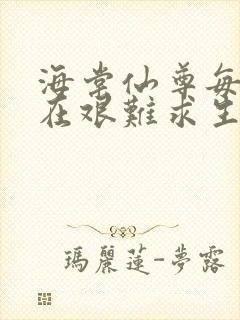 海棠仙尊每
在艰難求生
瑪麗蓮-夢露